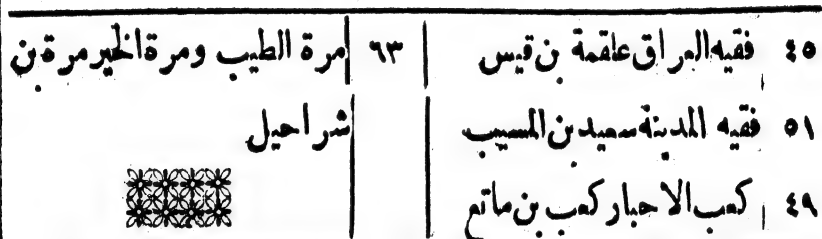 ٤٥ فقيه العراق علقمة بن قيس
٥١ فقيه المدينة سعيد بن المسيب
٤٩ كعب الاحبار كعب بن ماتع
٦٣ مرة الطيب ومرة الخير مرة بن
شراحيل